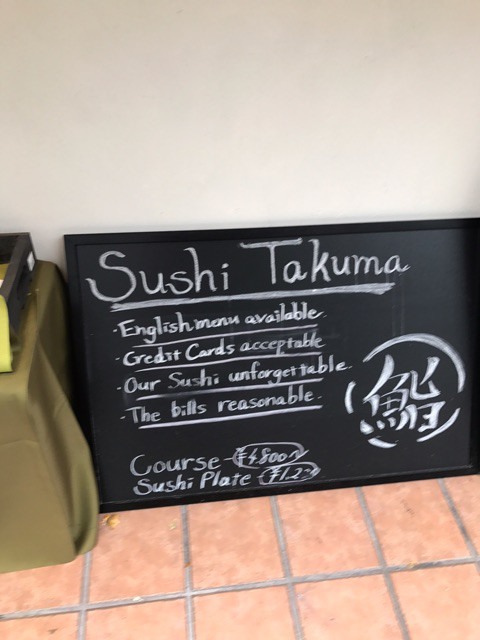 Sushi Takuma
·English menu available.
·Credit Cards acceptable
·Our Sushi unforgettable.
·The bills reasonable.
鮨
Course - ¥4.800~
Sushi Plate